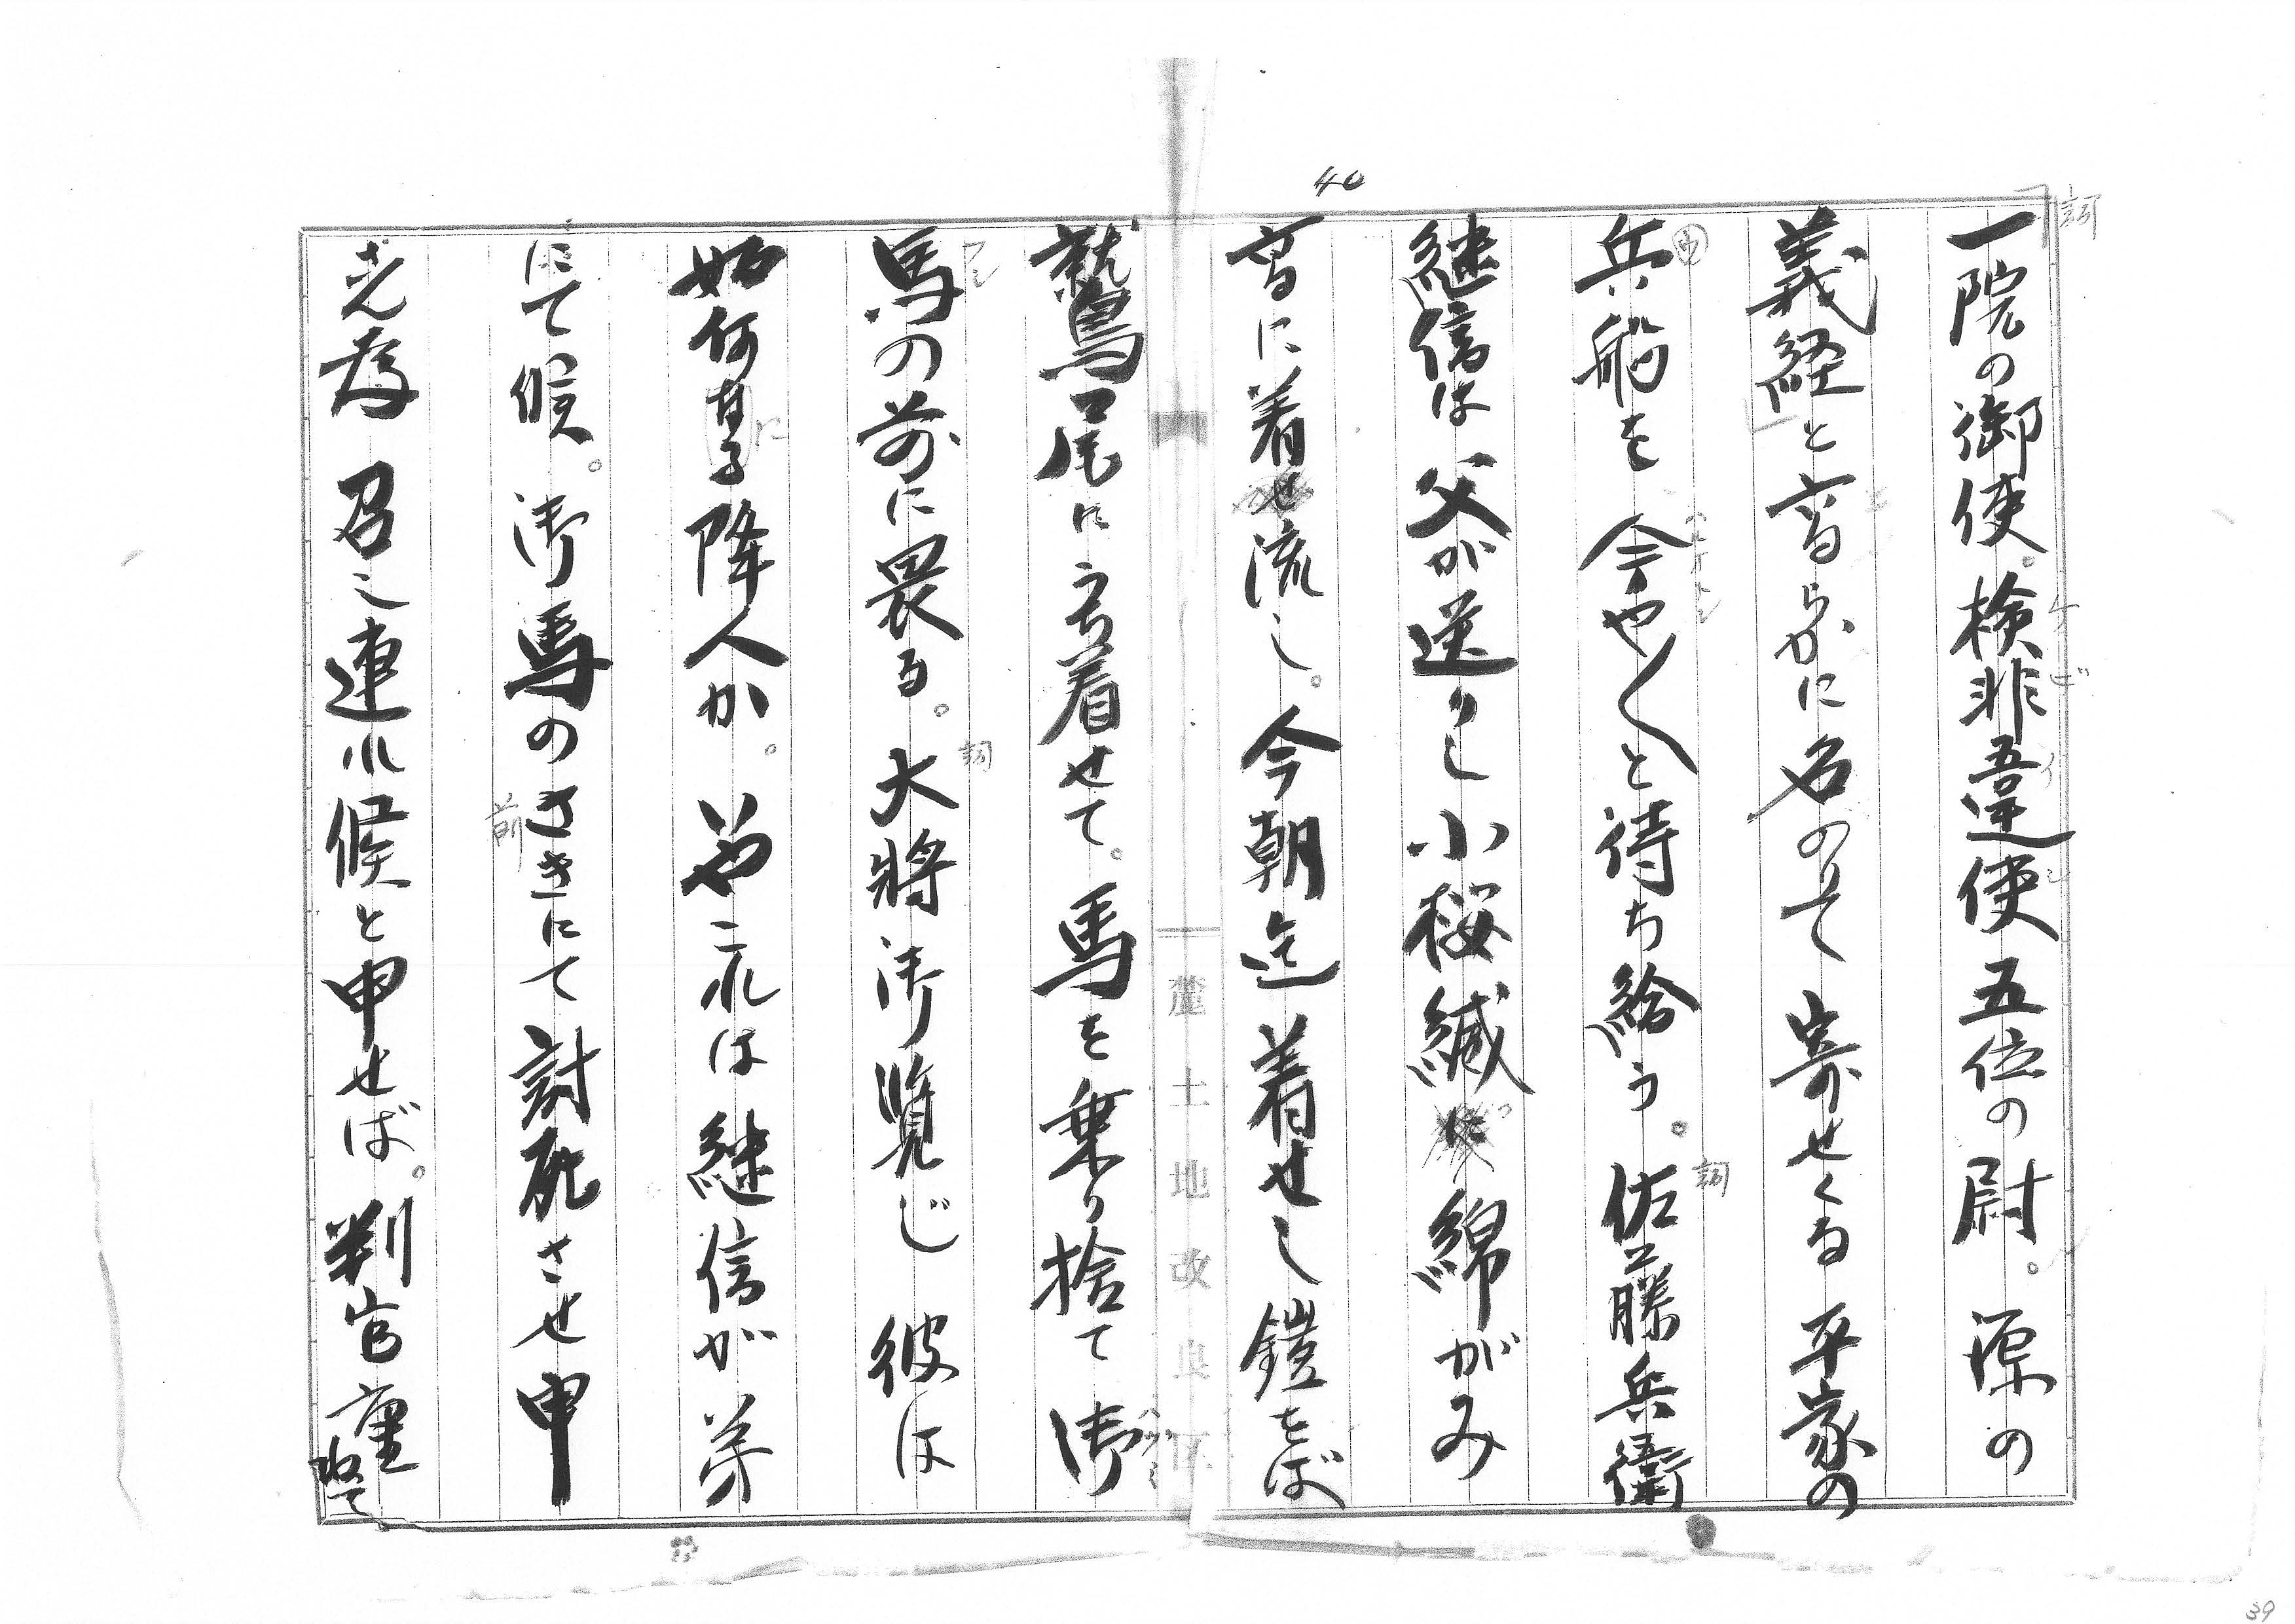 40
詞
一院の御使。検非違使五位の尉。源の
ケビイシ
義経と高らかに名のりて寄せくる平家の
兵船を今や〱と待ち給う。佐藤兵衛
詞
継信は父が送りし小桜縅 綿がみ
高に着流し。今朝迄着せし鎧をば
鷲尾にうち着せて。馬を乗り捨て御
馬の前に畏る。大将御覧じ彼は
詞
如何なる降人か。いやこれは継信が弟
に
にて候。御馬のさきにて討死させ申
前
さん為召し連れ候と申せば。判官
麓土地改良区
39